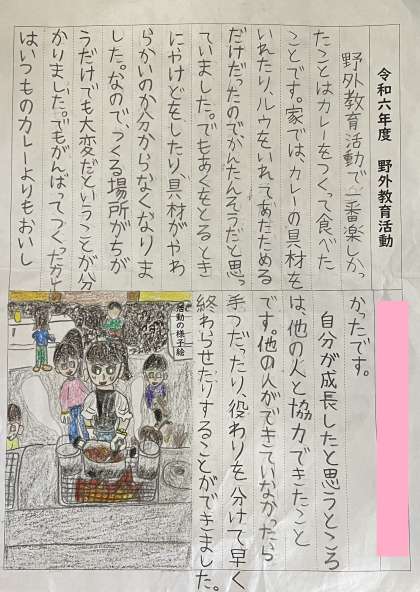 令和六年度　野外教育活動
野外教育活動で一番楽しかっ
たことはカレーをつくって食べた
ことです。家では、カレーの具材を
いれたり、ルウをいれてあたためる
だけだったので、かんたんそうだと思っ
ていました。でもあくをとるとき
にやけどをしたり、具材がやわ
らかいのか分からなくなりま
した。なので、つくる場所がちが
うだけでも大変だということが分
かりました。でもがんばってつくったカレー
はいつものカレーよりもおいし
かったです。
自分が成長したと思うところ
は、他の人と協力できたこと
です。他の人ができていなかったら
手つだったり、役わりを分けて早く
終わらせたりすることができました。
活動の様子絵